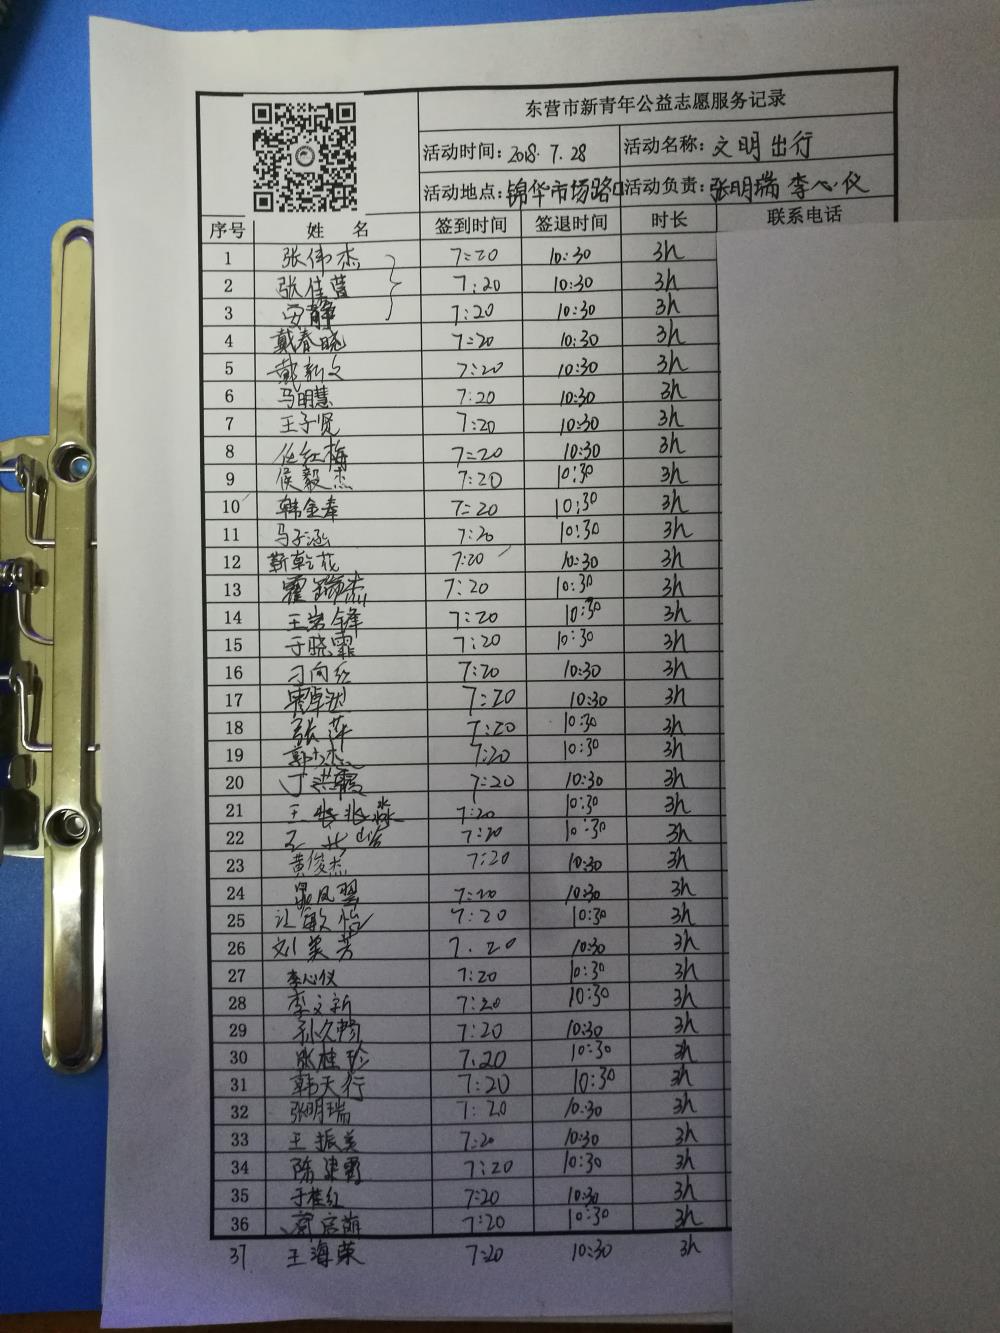 东营市新青年公益志愿服务记录
活动时间：2018.7.28 活动名称：文明出行
活动地点：锦华市场路口 活动负责：张明瑞 李心仪
序号 姓 名 签到时间 签退时间 时长 联系电话
1 张伟杰 7:20 10:30 3h
2 张佳萱 7:20 10:30 3h
3 静 7:20 10:30 3h
4 戴春晓 7:20 10:30 3h
5 戴新文 7:20 10:30 3h
6 马明慧 7:20 10:30 3h
7 王子贤 7:20 10:30 3h
8 任红梅 7:20 10:30 3h
9 侯毅杰 7:20 10:30 3h
10 韩金奉 7:20 10:30 3h
11 马子涵 7:20 10:30 3h
12 靳乾花 7:20 10:30 3h
13 霍瑞杰 7:20 10:30 3h
14 王岩锋 7:20 10:30 3h
15 于晓霏 7:20 10:30 3h
16 刁向红 7:20 10:30 3h
17 7:20 10:30 3h
18 张萍 7:20 10:30 3h
19 7:20 10:30 3h
20 丁洪霞 7:20 10:30 3h
21 王 7:20 10:30 3h
22 7:20 10:30 3h
23 黄俊杰 7:20 10:30 3h
24 7:20 10:30 3h
25 敏怡 7:20 10:30 3h
26 刘美芳 7.20 10:30 3h
27 李心仪 7:20 10:30 3h
28 李文新 7:20 10:30 3h
29 孙久畅 7:20 10:30 3h
30 张桂珍 7.20 10:30 3h
31 韩天行 7:20 10:30 3h
32 张明瑞 7:20 10:30 3h
33 王振美 7:20 10:30 3h
34 陈建霞 7:20 10:30 3h
35 于桂红 7:20 10:30 3h
36 7:20 10:30 3h
37 王海荣 7:20 10:30 3h